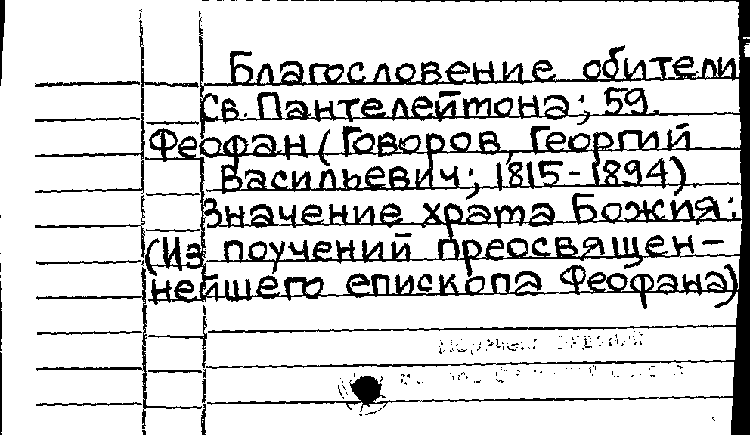 Благословение обители
Св. Пантелеймона; 59.
Феофан (Говоров, Георгий
Васильевич; 1815-1894).
Значение храма Божия:
(Из поучений преосвящен-
нейшего епископа Феофана)